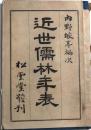 内野皎亭編次
近世儒林年表
松雲堂發刊